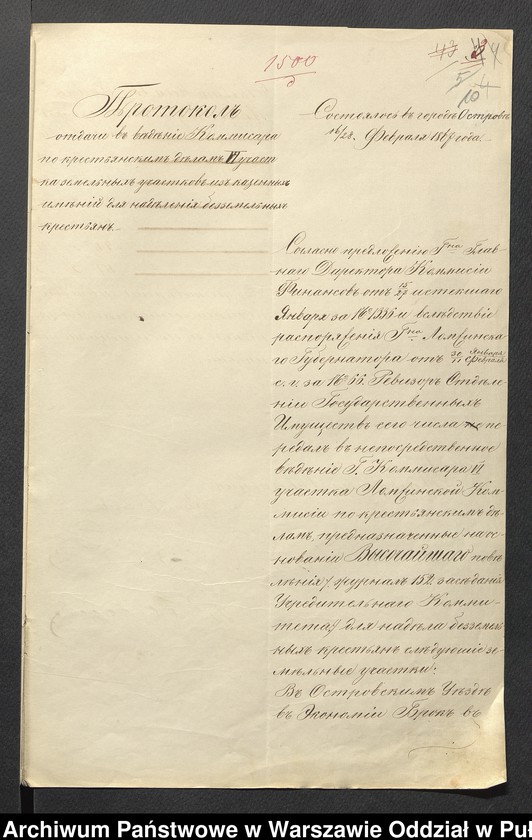 1500
Протоколъ
отдачи въ вѣдѣніе Коммисара
по крестьянскимъ дѣламъ VI участ
ка земельныхъ участковъ изъ казенныхъ
имѣній для надѣленія безземельныхъ
крестьянъ.
Состоялось въ городѣ Островѣ
16/28 Февраля 1867 года.
Согласно предложенію Гна Глав
наго Директора Коммисіи
Финансовъ отъ 15/27 истекшаго
Января за № и вслѣдствіе
распоряженія Гна Ломжинска
го Губернатора отъ 30 Января Февраля
с. г. за № 55. Ревизоръ Отдѣле
нія Государственныхъ
Имуществъ сего числа пе
редалъ въ непосредственное
вѣдѣніе Г. Коммисара VI
участка Ломжинской Ком
мисіи по крестьянскимъ дѣ
ламъ, предназначенные на ос
нованіи Высочайшаго повѣ
лѣнія / журналъ 152 засѣданія
Учредительнаго Комми-
тета / для надѣла безземель
ныхъ крестьянъ слѣдующіе зе
мѣльные участки:
Въ Островскимъ Уѣздѣ
въ Экономіи Брокъ въ
Archiwum Państwowe w Warszawie Oddział w Puł